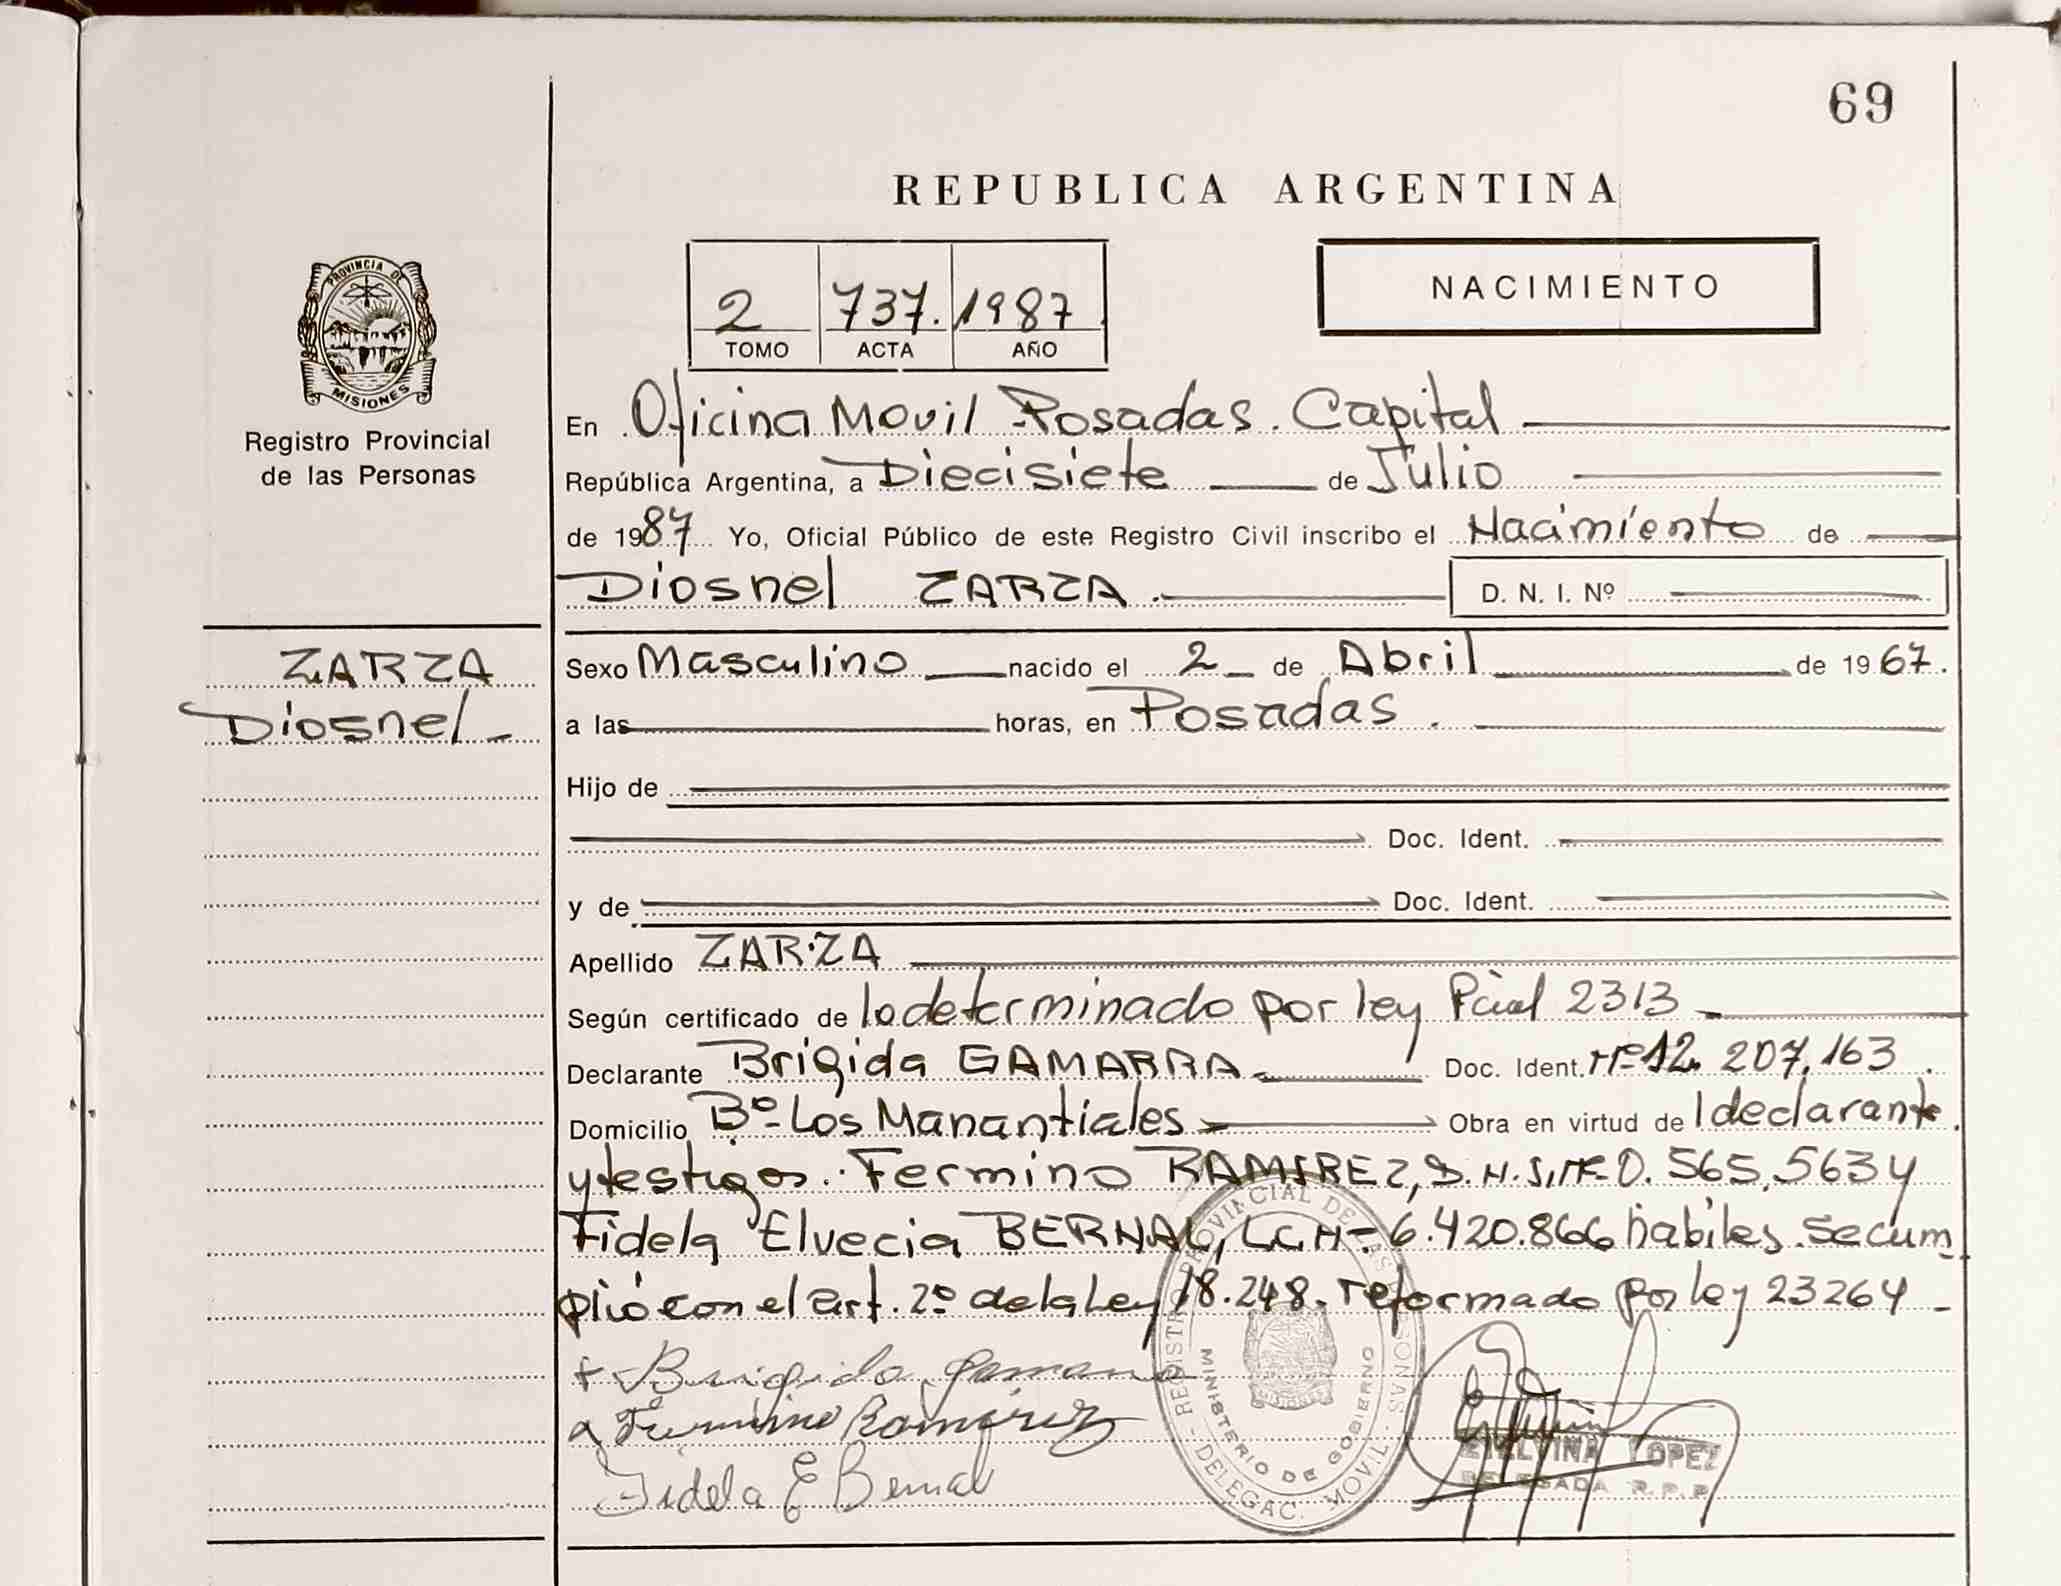 69
REPUBLICA ARGENTINA
PROVINCIA DE
MISIONES
Registro Provincial
de las Personas
2 737. 1987
TOMO ACTA AÑO
NACIMIENTO
En Oficina Movil Posadas. Capital
República Argentina, a Diecisiete de Julio
de 1987 Yo, Oficial Público de este Registro Civil inscribo el Nacimiento de
Diosnel ZARZA. D. N. I. Nº
ZARZA
Diosnel
Sexo Masculino nacido el 2 de Abril de 1967.
a las horas, en Posadas.
Hijo de
Doc. Ident.
y de Doc. Ident.
Apellido ZARZA
Según certificado de lo determinado por ley Pcial 2313
Declarante Brigida GAMARRA Doc. Ident. Nº 12.207.163
Domicilio Bº Los Manantiales Obra en virtud de l declarante
y testigos. Fermino RAMIREZ, D.N.I. Nº 0.565.563 y
Fidela Elvecia BERNAL, L.C.Nº 6.420.866 habiles. se cum
plió con el art. 2º de la Ley 18.248. reformado por ley 23264
Brigida Gamarra
Fermino Ramirez
Fidela E Bernal
REGISTRO PROVINCIAL DE LAS PERSONAS - DELEGAC. MOVIL -
MINISTERIO DE GOBIERNO
ETELVINA LOPEZ
DELEGADA R.P.P.